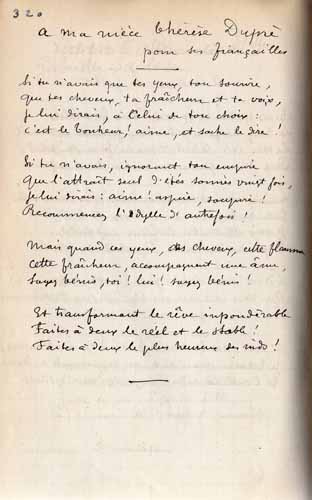 320
A ma nièce Thérèse Dupré
pour ses fiançailles
Si tu n'avais que tes yeux, ton sourire,
que tes cheveux, ta fraîcheur et ta voix,
je lui dirais, à Celui de ton choix :
c'est le bonheur ! aime, et sache le dire !
Si tu n'avais, ignorant ton empire
Que l'attrait seul d'étés sonnés vingt fois,
je lui dirais : aime ! aspire, soupire !
Recommencez l'idylle d'autrefois !
Mais quand ces yeux, ces cheveux, cette flamme
cette fraîcheur, accompagnent une âme,
soyez bénis, toi ! lui ! soyez bénis !
Et transformant le rêve impondérable
Faites à deux le réel et le stable !
Faites à deux le plus heureux des nids !